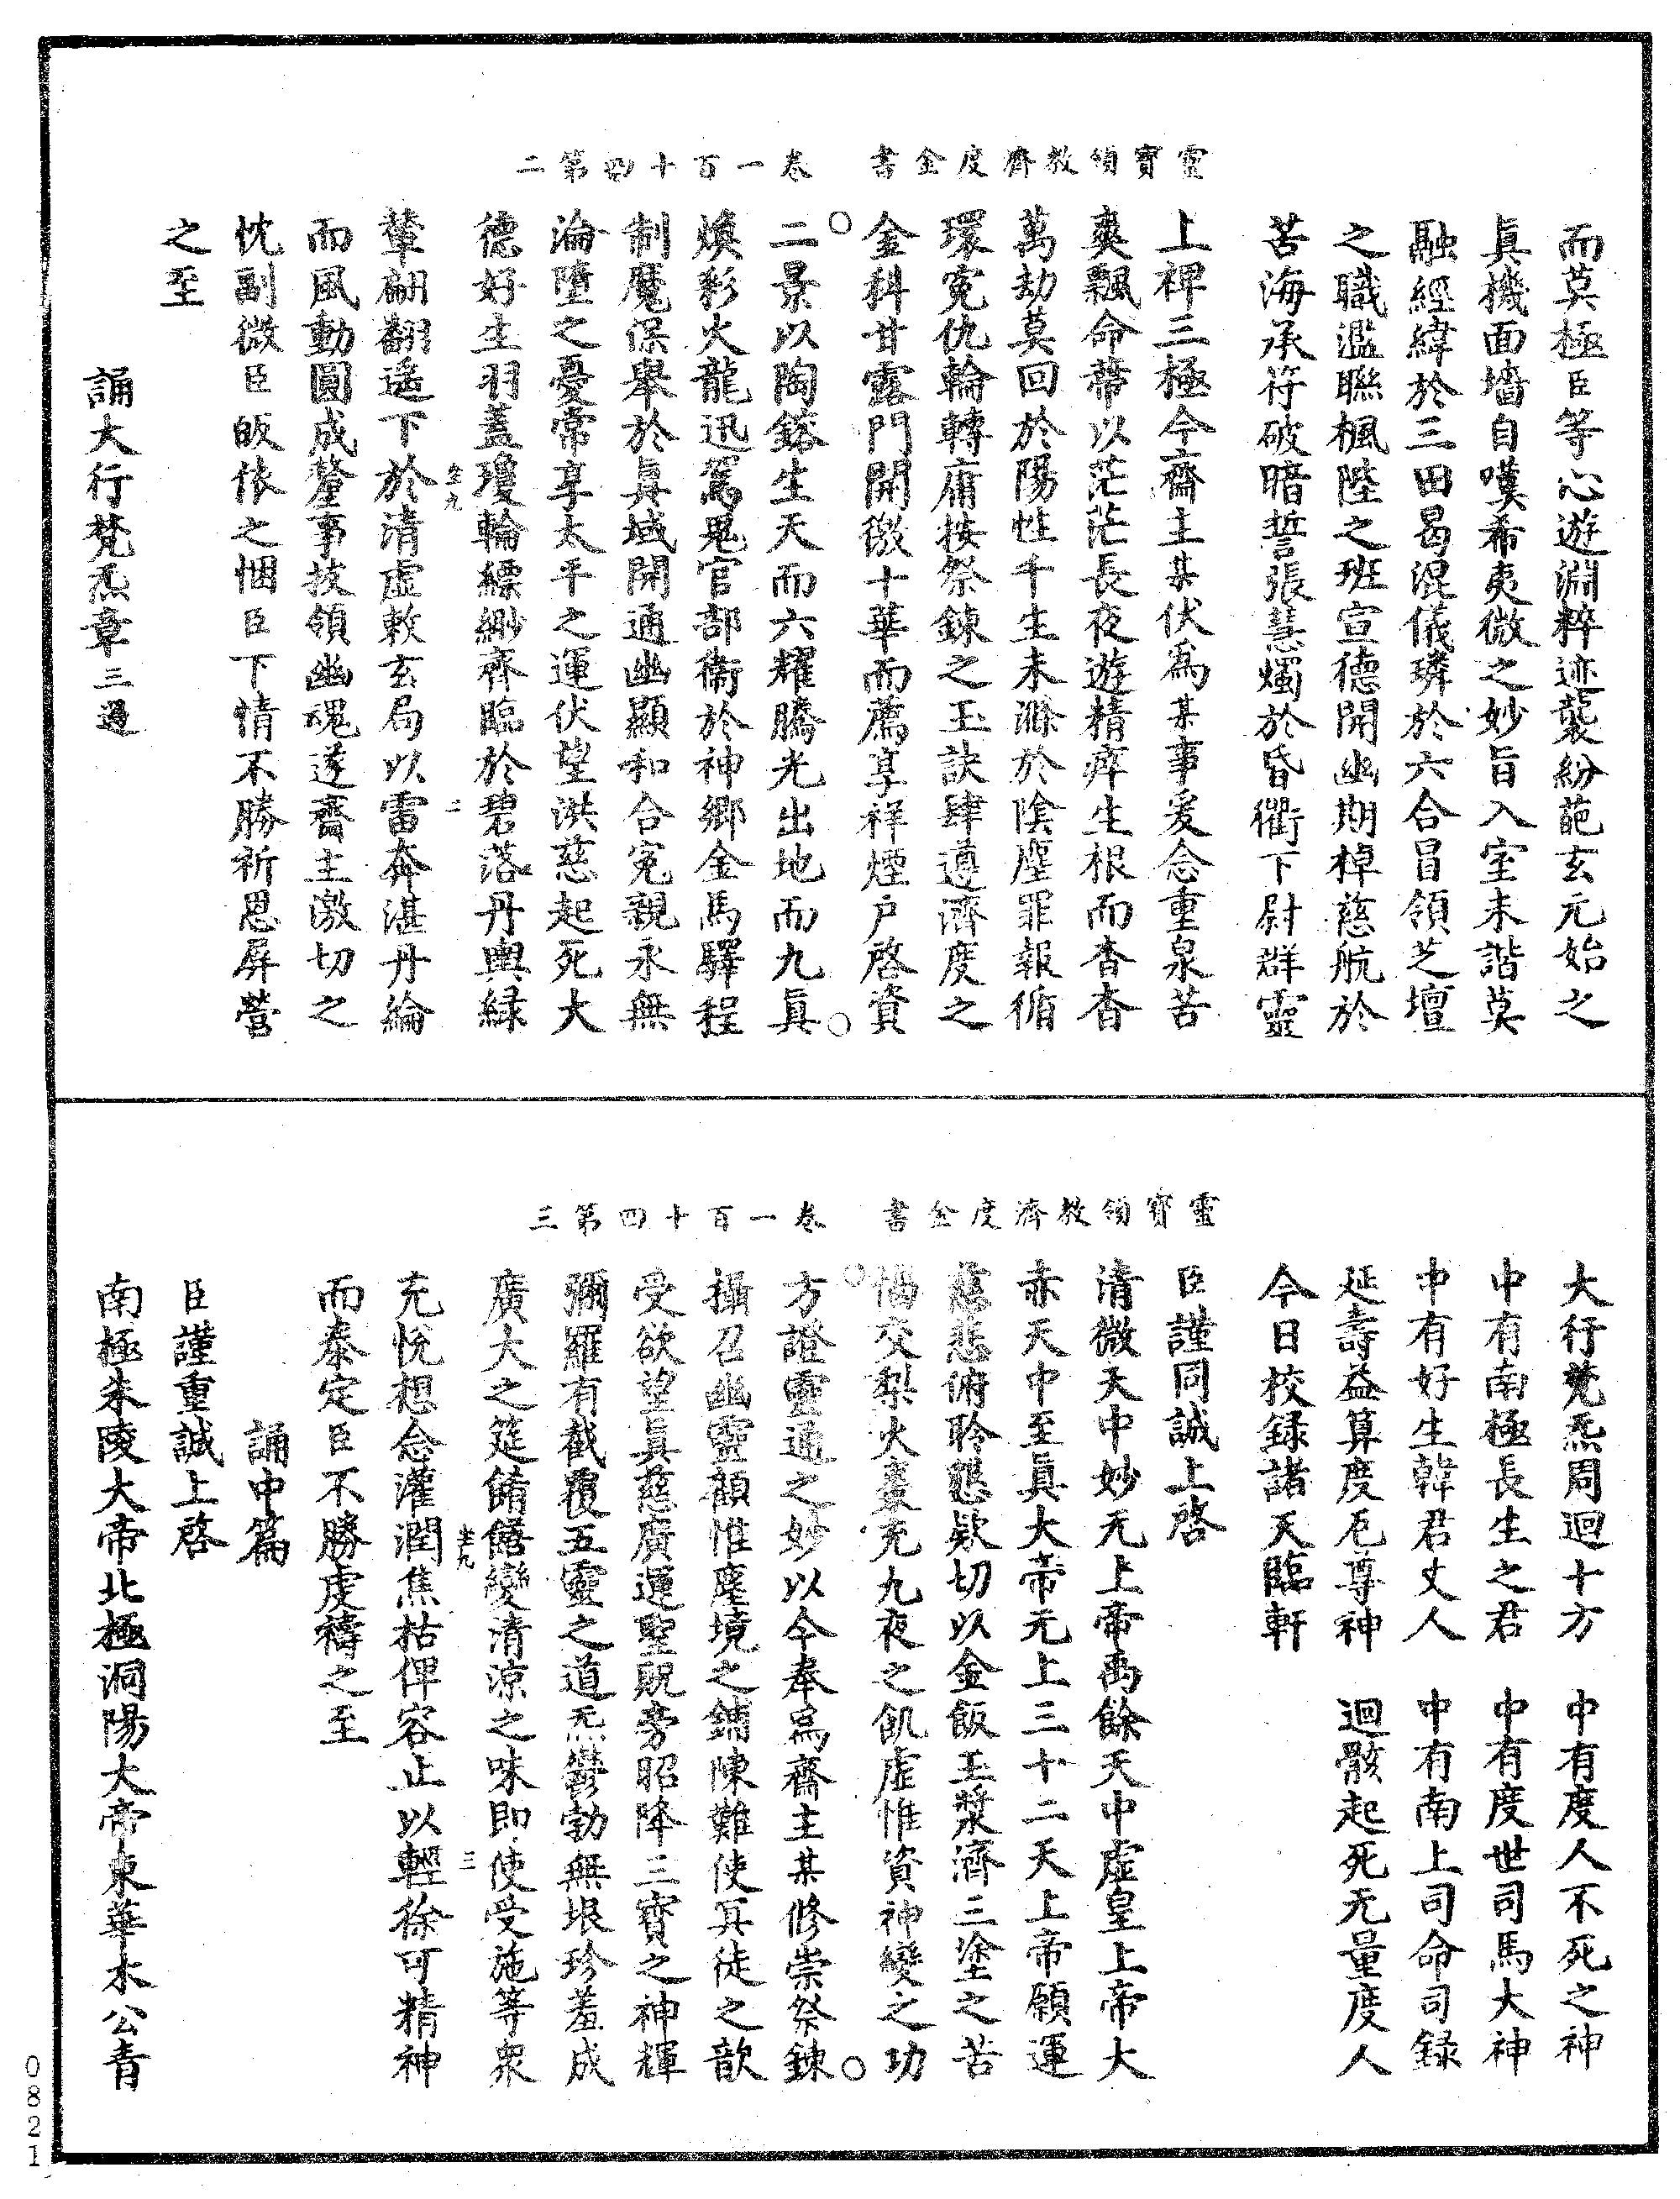 靈寶領教濟度金書　卷一百十四第二
而莫極臣等心遊淵粹迹襲紛葩玄元始之
眞機面墻自嘆希夷微之妙旨入室未諧莫
融經緯於三田曷混儀璘於六合冒領芝壇
之職濫聯楓陛之班宣德開幽期棹慈航於
苦海承符破暗誓張慧燭於昏衢下尉群靈
上裨三極今齋主某伏爲某事爰念重泉苦
爽飄命蔕以茫茫長夜遊精瘁生根而杳杳
萬劫莫回於陽性千生未滌於陰塵罪報循
環冤仇輪轉庸按祭鍊之玉訣肆遵濟度之
金科甘露門開徹十華而薦享祥煙户啓資
二景以陶鎔生天而六耀騰光出地而九眞
煥彩火龍迅駕鬼官部衞於神鄉金馬驛程
制魔保舉於眞域開通幽顯和合冤親永無
淪墮之憂常享太平之運伏望洪慈起死大
德好生羽蓋瓊輪縹緲齊臨於碧落丹輿緑
輦翩翻遙下於清虛敕玄局以雷奔湛丹綸
而風動圓成釐事拔領幽魂遂齋主激切之
忱副微臣皈依之悃臣下情不勝祈恩屏營
之至
誦大行梵炁章三過
靈寶領教濟度金書　卷一百十四第三
大行梵炁周迴十方　中有度人不死之神
中有南極長生之君　中有度世司馬大神
中有好生韓君丈人　中有南上司命司録
延壽益算度厄尊神　迴骸起死无量度人
今日校録諸天臨軒
臣謹同誠上啓
清微天中妙无上帝禹餘天中虛皇上帝大
赤天中至眞大帝元上三十二天上帝願運
慈悲俯聆懇欵切以金飯玉漿濟三塗之苦
惱交梨火棗充九夜之飢虛惟資神變之功
方證靈通之妙以今奉爲齋主某修崇祭鍊
攝召幽靈顧惟塵境之鋪陳難使冥徒之歆
受欲望眞慈廣運聖貺旁昭降三寶之神輝
彌羅有截覆五靈之道炁鬱勃無垠珍羞成
廣大之筵餚饍變清涼之味即使受施等衆
充悅想念灌潤焦枯俾容止以輕徐可精神
而泰定臣不勝虔禱之至
誦中篇
臣謹重誠上啓
南極朱陵大帝北極洞陽大帝東華木公青
0821